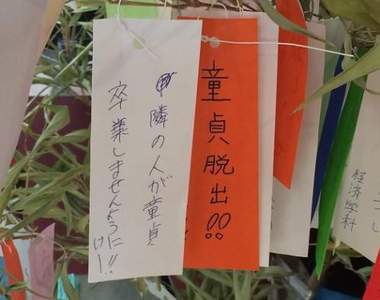 経済学科
童貞脱出!!
隣の人が童貞
卒業しませんように!!
けー